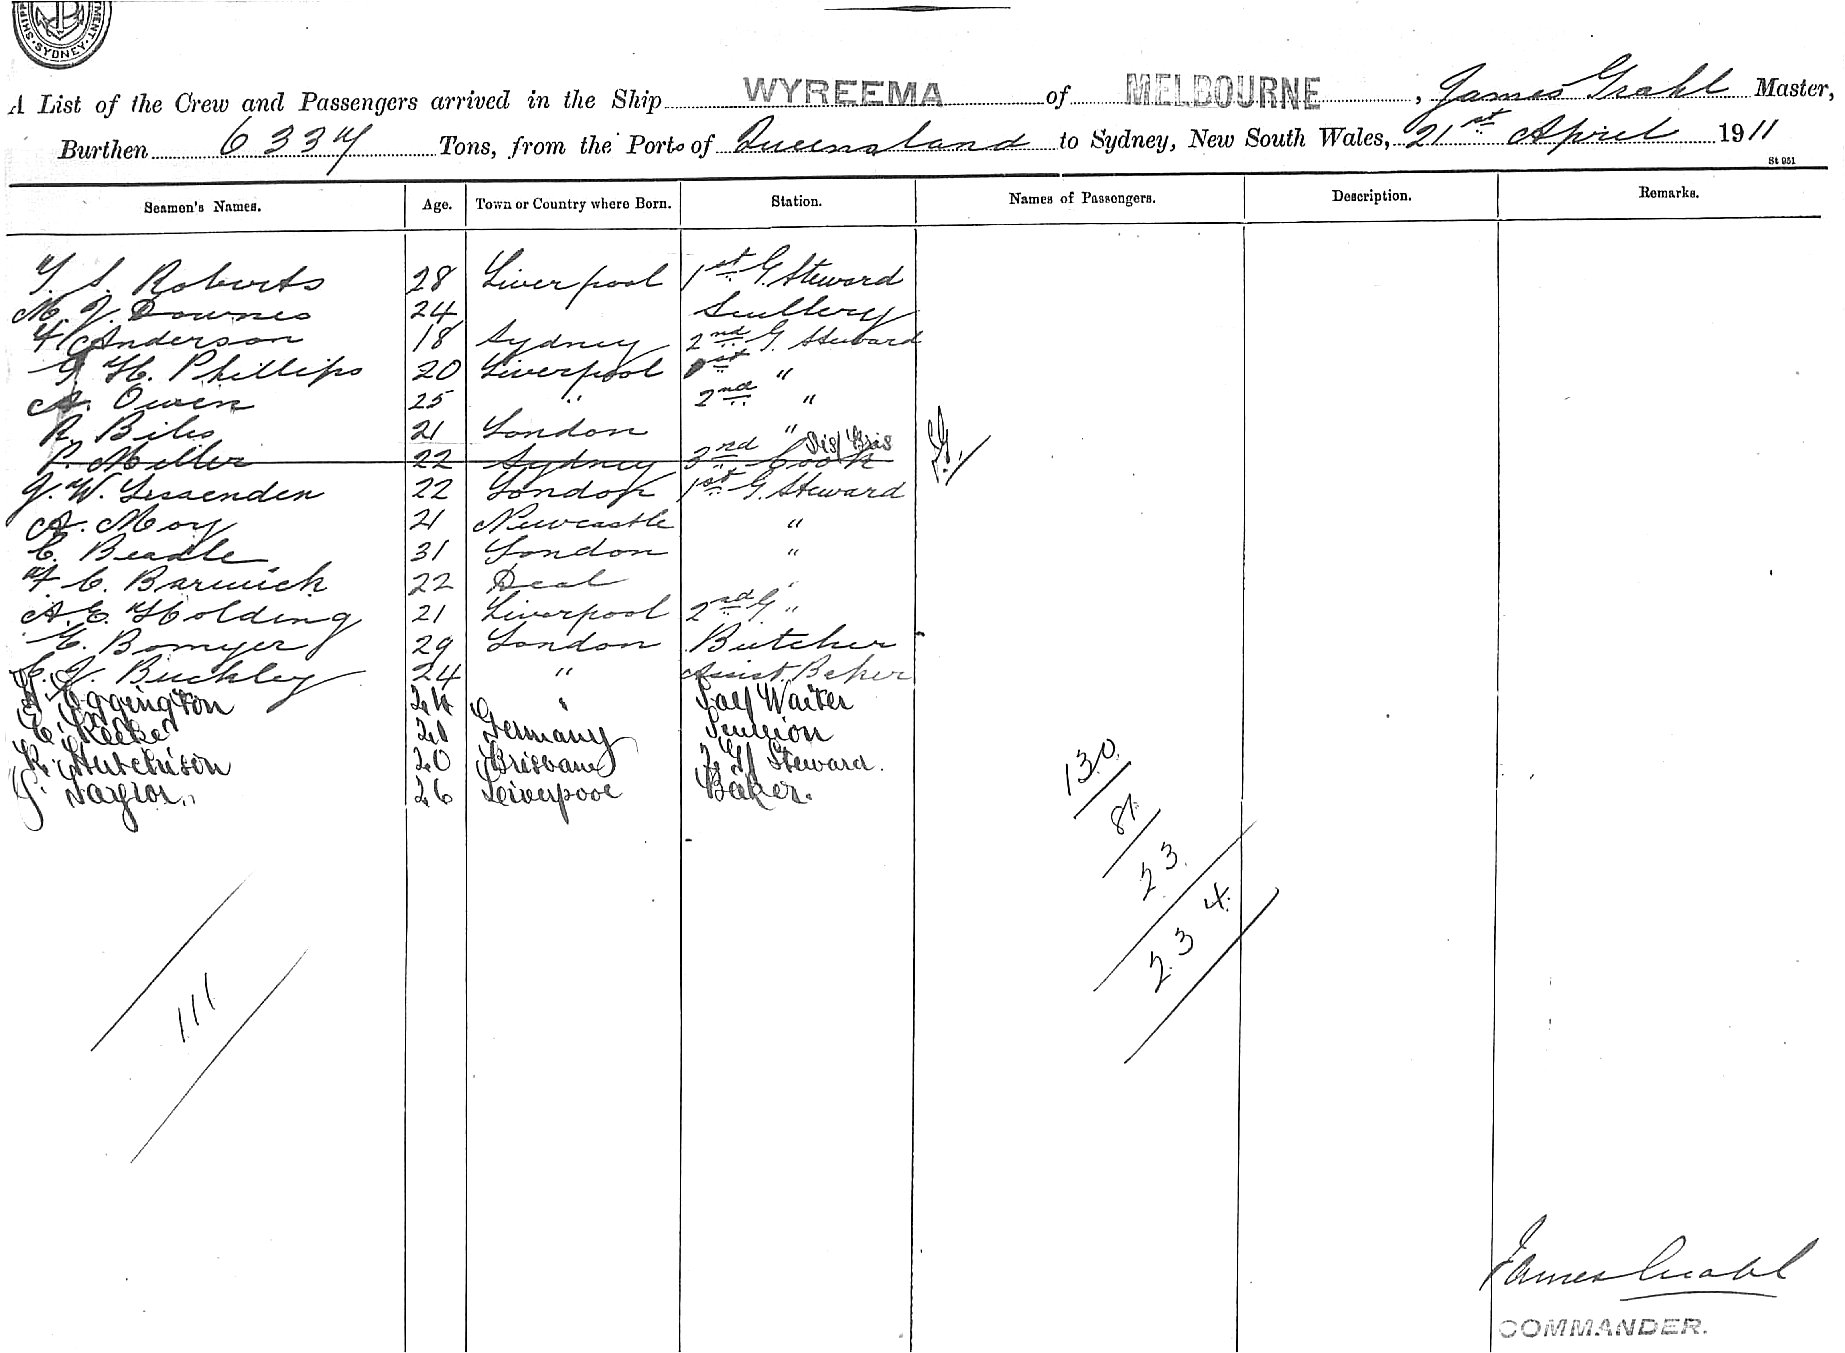 SYDNEY
A List of the Crew and Passengers arrived in the Ship WYREEMA of MELBOURNE, James Grahl Master,
Burthen 6337 Tons, from the Ports of Queensland to Sydney, New South Wales, 21st April 1911
St 951
Seamen's Names. Age. Town or Country where Born. Station. Names of Passengers. Description. Remarks.
S. Roberts 28 Liverpool 1st G. Steward
M. J. Downes 24 Scullery
Anderson 18 Sydney 2nd G. Steward
G. H. Phillips 20 Liverpool 1st "
A. Owen 25 " 2nd "
R. Biles 21 London "
Dis Bris
P. Miller 22 Sydney 3rd Cook
J. W. Lissenden 22 London 1st G. Steward
A. Moy 21 Newcastle "
C. Beadle 31 London "
F. C. Barwick 22 Deal "
A. E. Holding 21 Liverpool 2nd G. "
E. Bomyer 29 London Butcher
C. J. Buckley 24 " Assist. Baker
Eggington 24 " Waiter
E. 21 Germany Scullion
R. Hutchison 20 Brisbane 2 G Steward.
G. Taylor 26 Liverpool Baker.
130
81
23
234
111
James Grahl
COMMANDER.